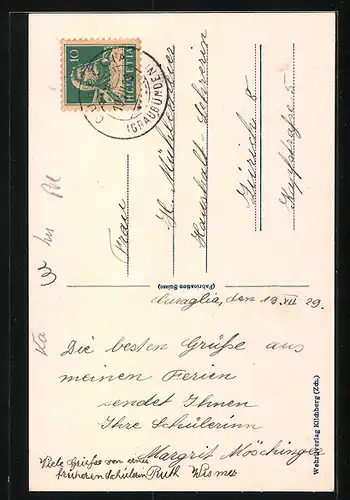 10
HELVETIA
(GRAUBÜNDEN)
Frau
H. Mühlemann
Haushalt-Lehrerin
Zürich 8
(Fabrication Suisse)
Curaglia, den 19. VII 29.
Die besten Grüße aus
meinen Ferien
sendet Ihnen
Ihre Schülerinn
Margrit Möschinger
Viele Grüsse von einer
früheren Schülerin Ruth Wismer
Wehrliverlag Kilchberg (Zch.)